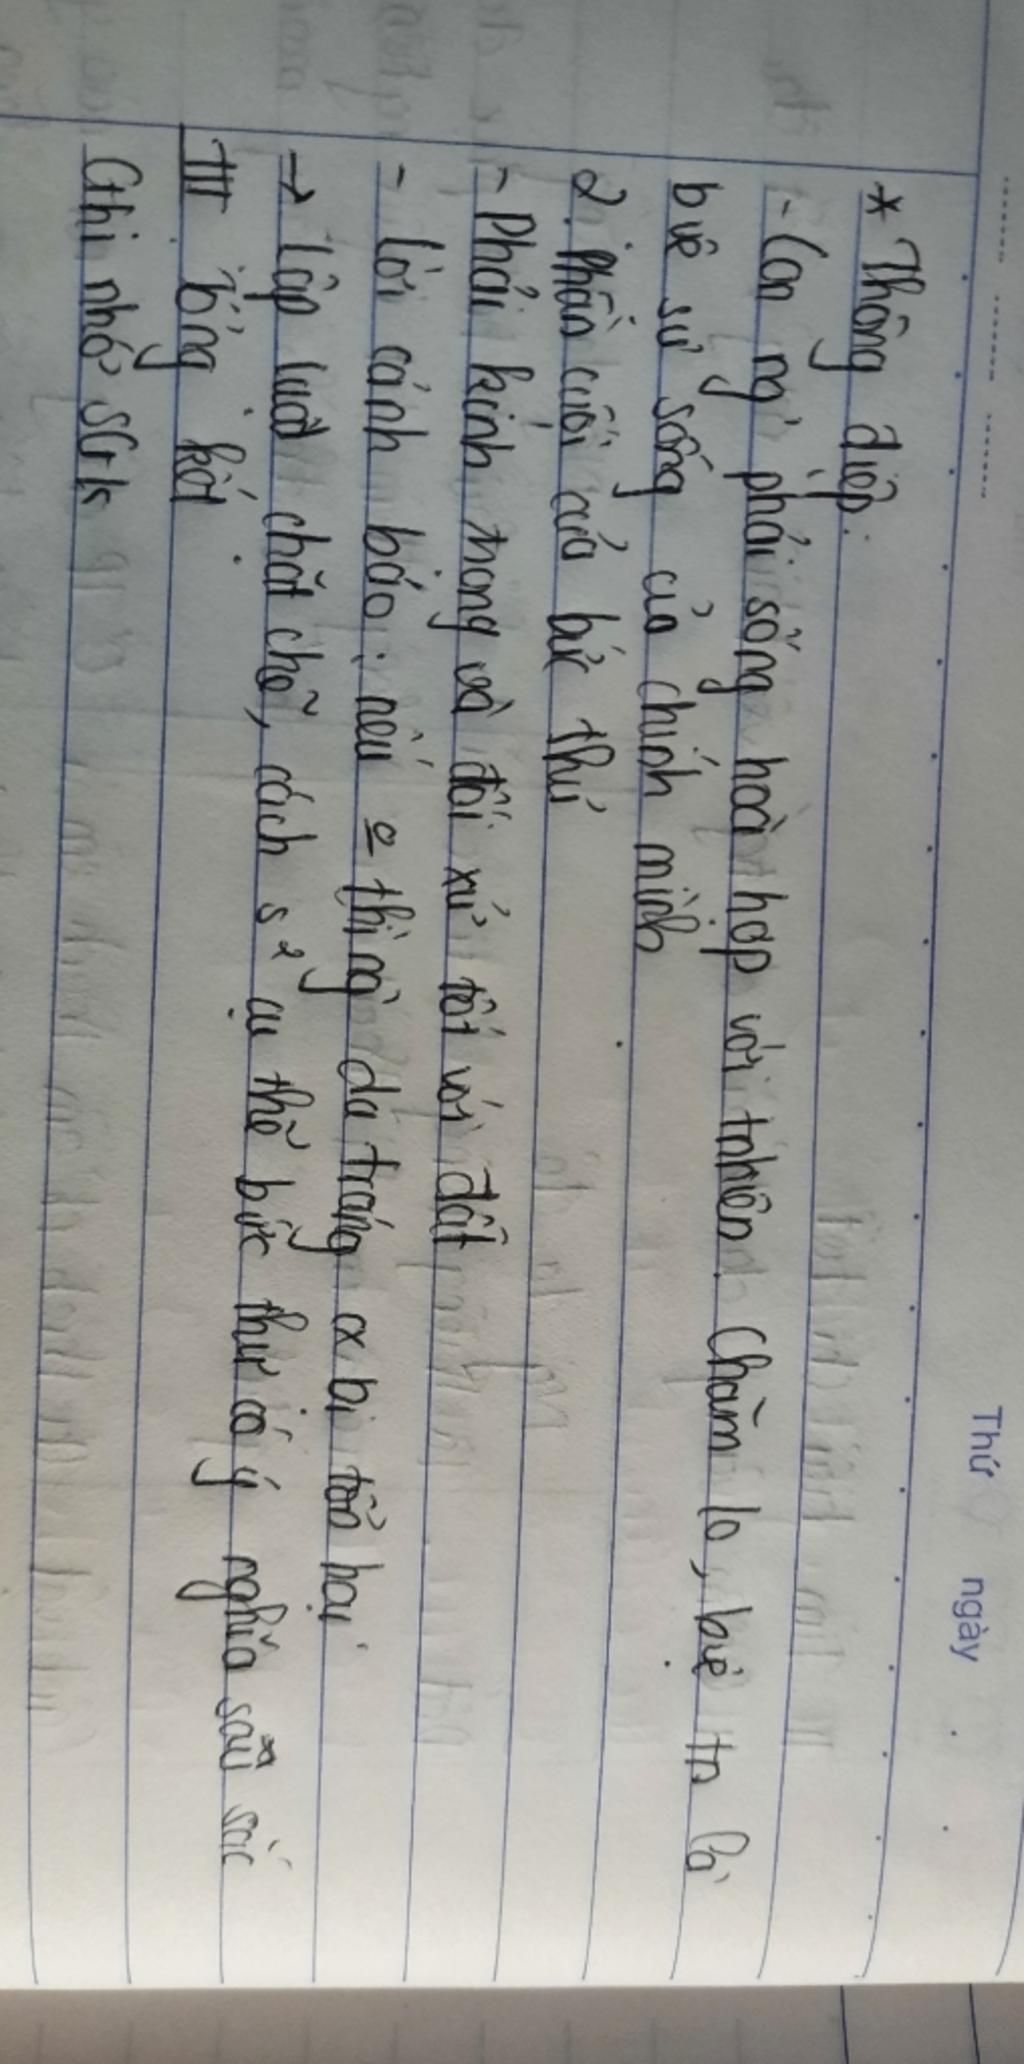 Thứ ngày
* Thông điệp:
- Con ng' phải sống hoà hợp với tnhiên. Chăm lo, bvệ tn là
bvệ sự sống của chính mình
2. Phần cuối của bức thư
- Phải kính trọng và đối xử tốt với đất
- Lời cảnh báo: nếu o thì ng' da trắng cx bị tổn hại
→ Lập luận chặt chẽ, cách s² cụ thể bức thư có ý nghĩa sâu sắc
III. Tổng kết
Ghi nhớ SGK